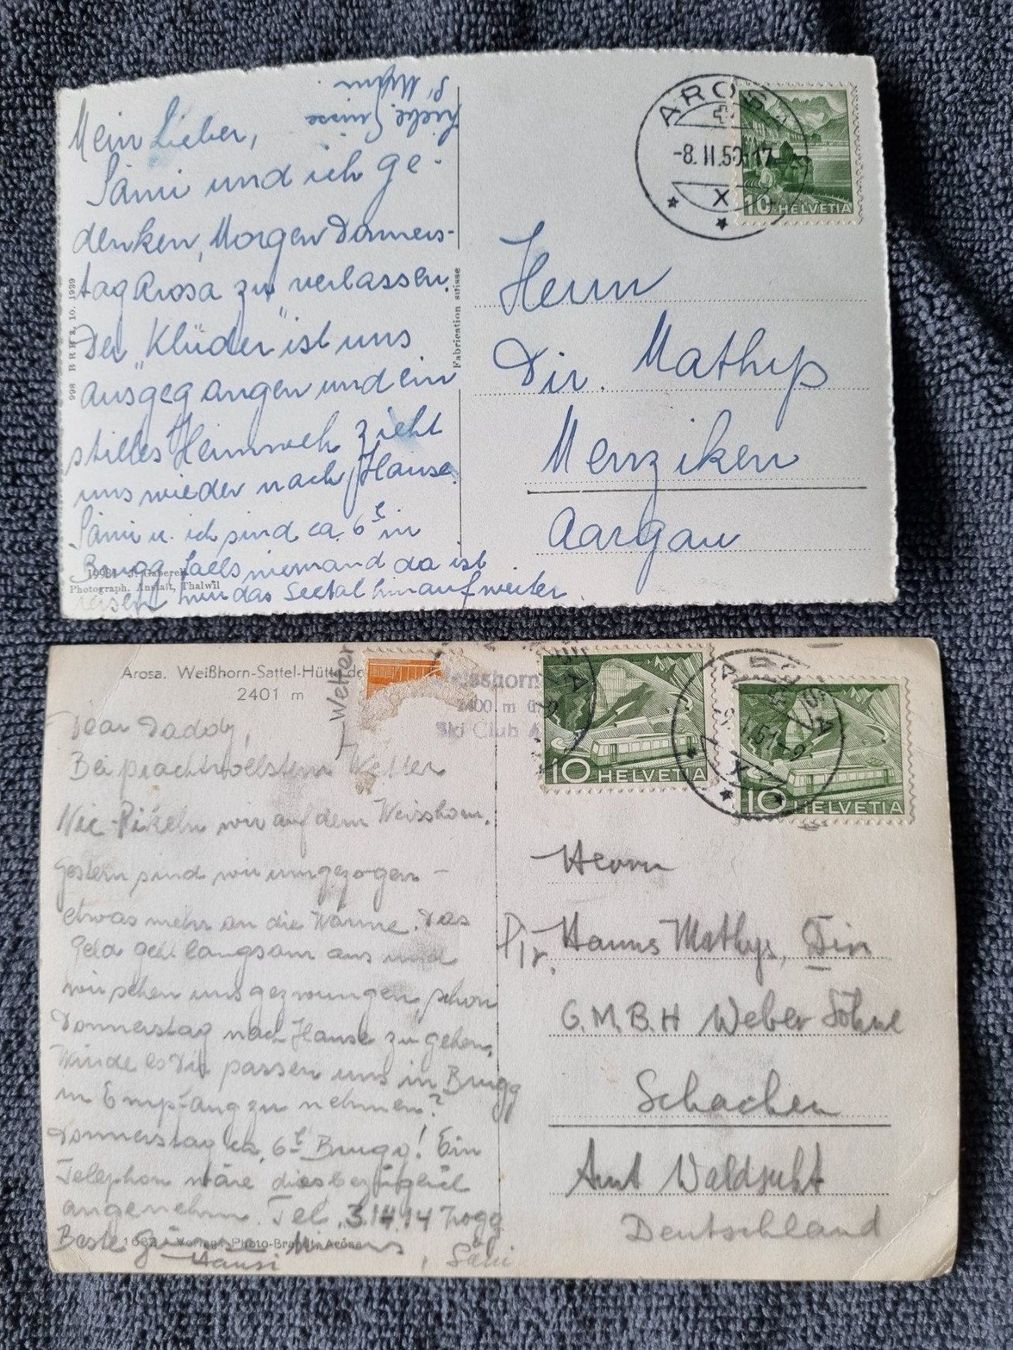 Mein Lieber,
Sämi und ich ge-
denken, Morgen Donners-
tag Arosa zu verlassen.
Der "Klüder" ist uns
ausgegangen und ein
stilles Heimweh zieht
uns wieder nach Hause.
Sämi u. ich sind ca. 6 in
Brugg falls niemand da ist
reisen wir das Seetal hinauf weiter.
998 B R H 3, 10. 1939
Photograph. Anstalt, Thalwil
Fabrication suisse
AROSA
-8. II. 50. 17
X
10 HELVETIA
Herrn
Dir. Mathys
Menziken
Aargau
Arosa. Weißhorn-Sattel-Hütte
2401 m
Dear Daddy,
Bei prachtvollstem Wetter
wir auf dem Weisshorn.
Gestern sind wir umgezogen -
etwas mehr an die Wärme. Das
Geld geht langsam aus und
wir sehen uns gezwungen, schon
Donnerstag nach Hause zu gehen.
Würde es Dir passen uns in Brugg
in Empfang zu nehmen?
Donnerstag ca. 6 Brugg! Ein
Telephon wäre diesbezüglich
angenehm. Tel. 31414
Beste
Hansi
Photo-Brandt, Arosa
2400 m ü.
Ski Club A
AROSA
10 HELVETIA
10 HELVETIA
Herrn
Dir. Hanns Mathys, Dir
G.M.B.H Weber Söhne
Schachen
Amt Waldshut
Deutschland